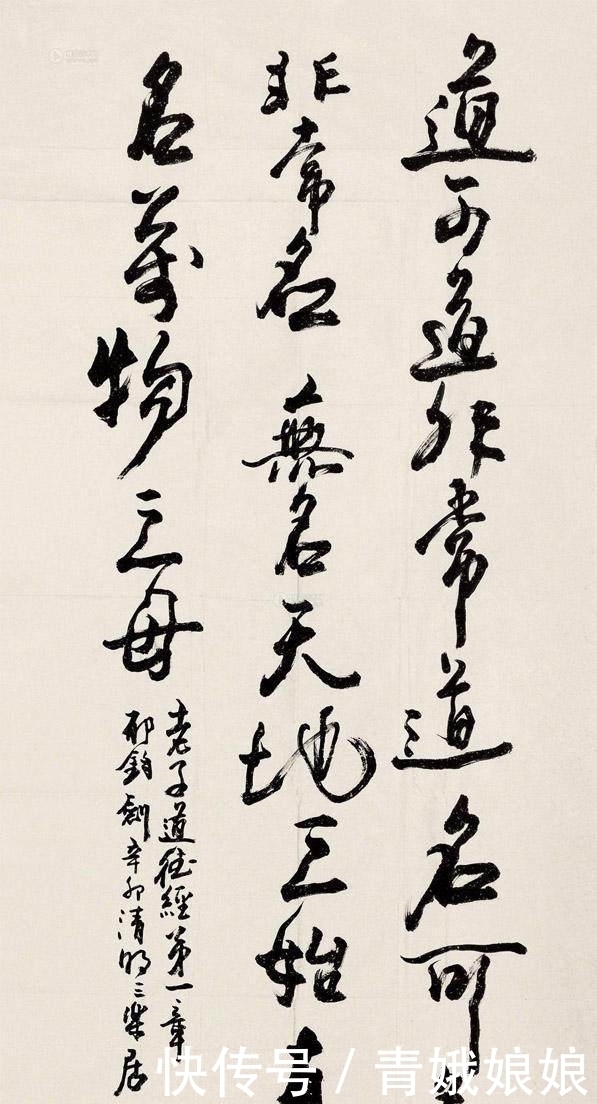 道可道非常道名可
非常名無名天地之始有
名萬物之母
老子道德經第一章
郁鈞劍辛卯清明三樂居
快传号 / 青娥娘娘